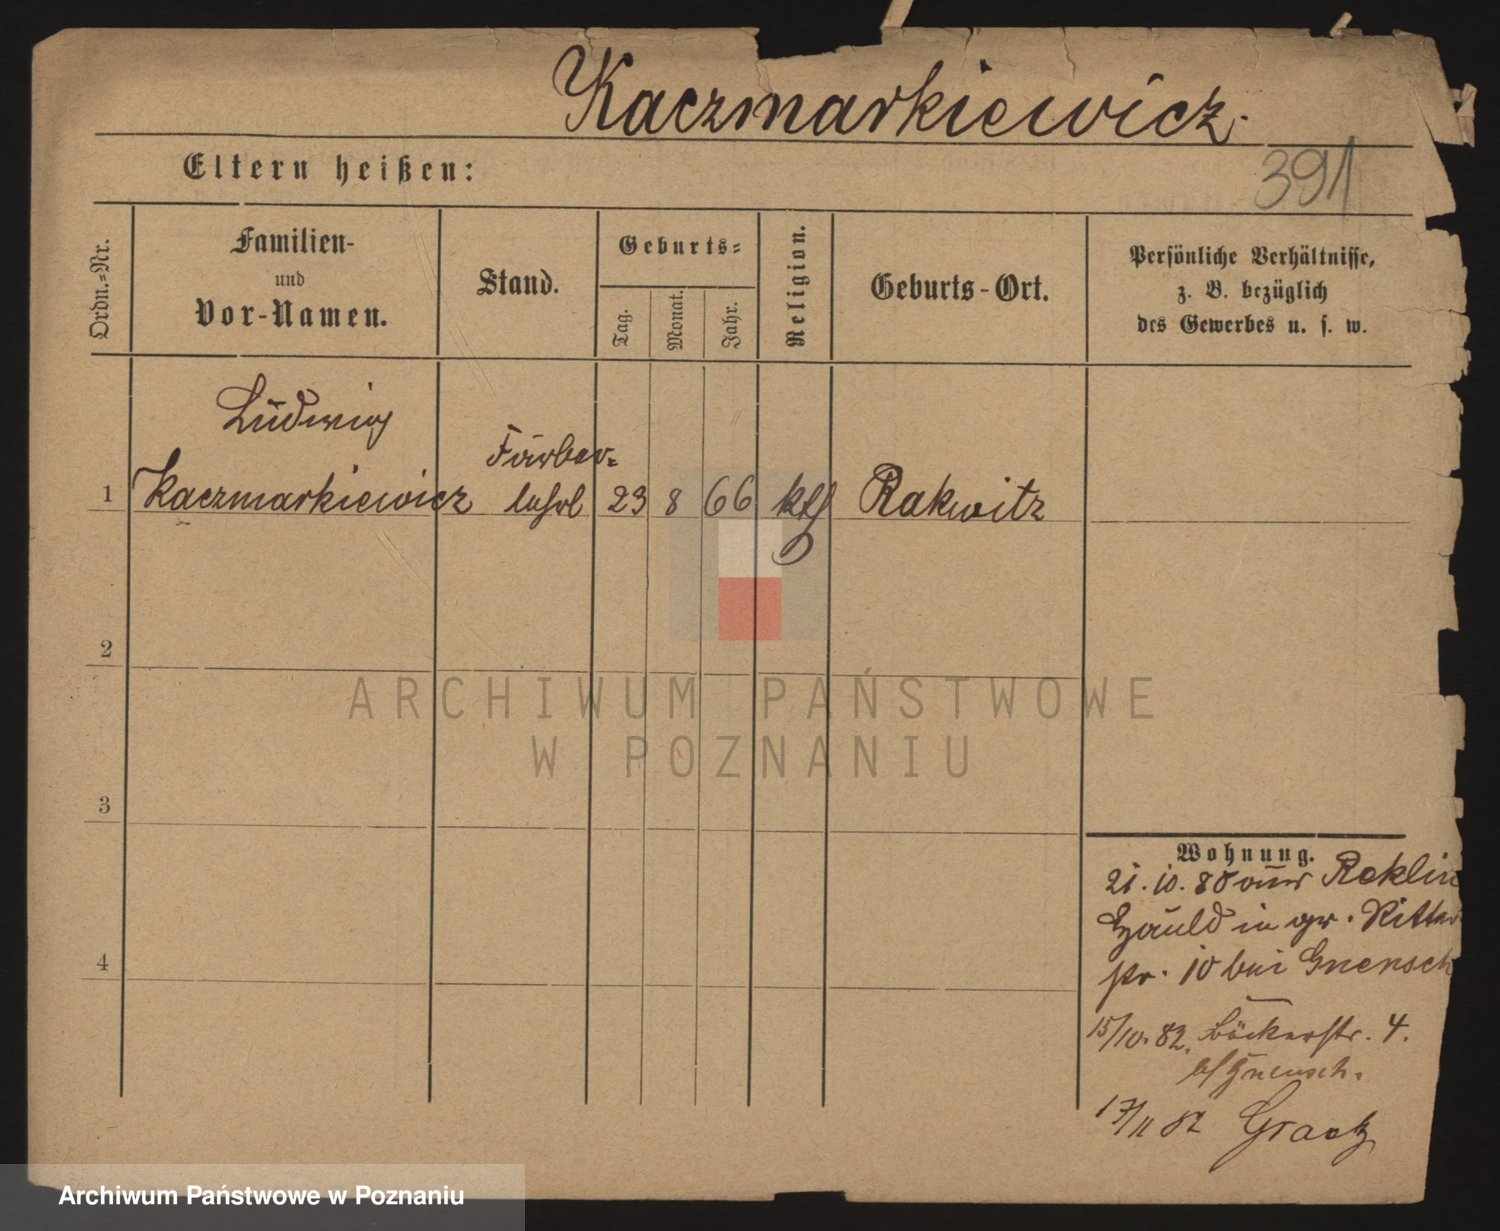 Kaczmarkiewicz.
Eltern heißen:
391
Ordn.-Nr.
Familien-
und
Vor-Namen.
Stand.
Geburts-
Tag.
Monat.
Jahr.
Religion.
Geburts-Ort.
Persönliche Verhältnisse,
z. B. bezüglich
des Gewerbes u. s. w.
Ludwig
Färber-
1 Kaczmarkiewicz lehrl 23 8 66 kth Rakwitz
2
3
4
Wohnung.
21. 10. 80 aus Reklin
Hauld in gr. Ritter
str. 10 bei Gnensch
15/10. 82. Bäckerstr. 4.
b/Gnensch.
17/11 82 Graetz
ARCHIWUM PAŃSTWOWE
W POZNANIU
Archiwum Państwowe w Poznaniu